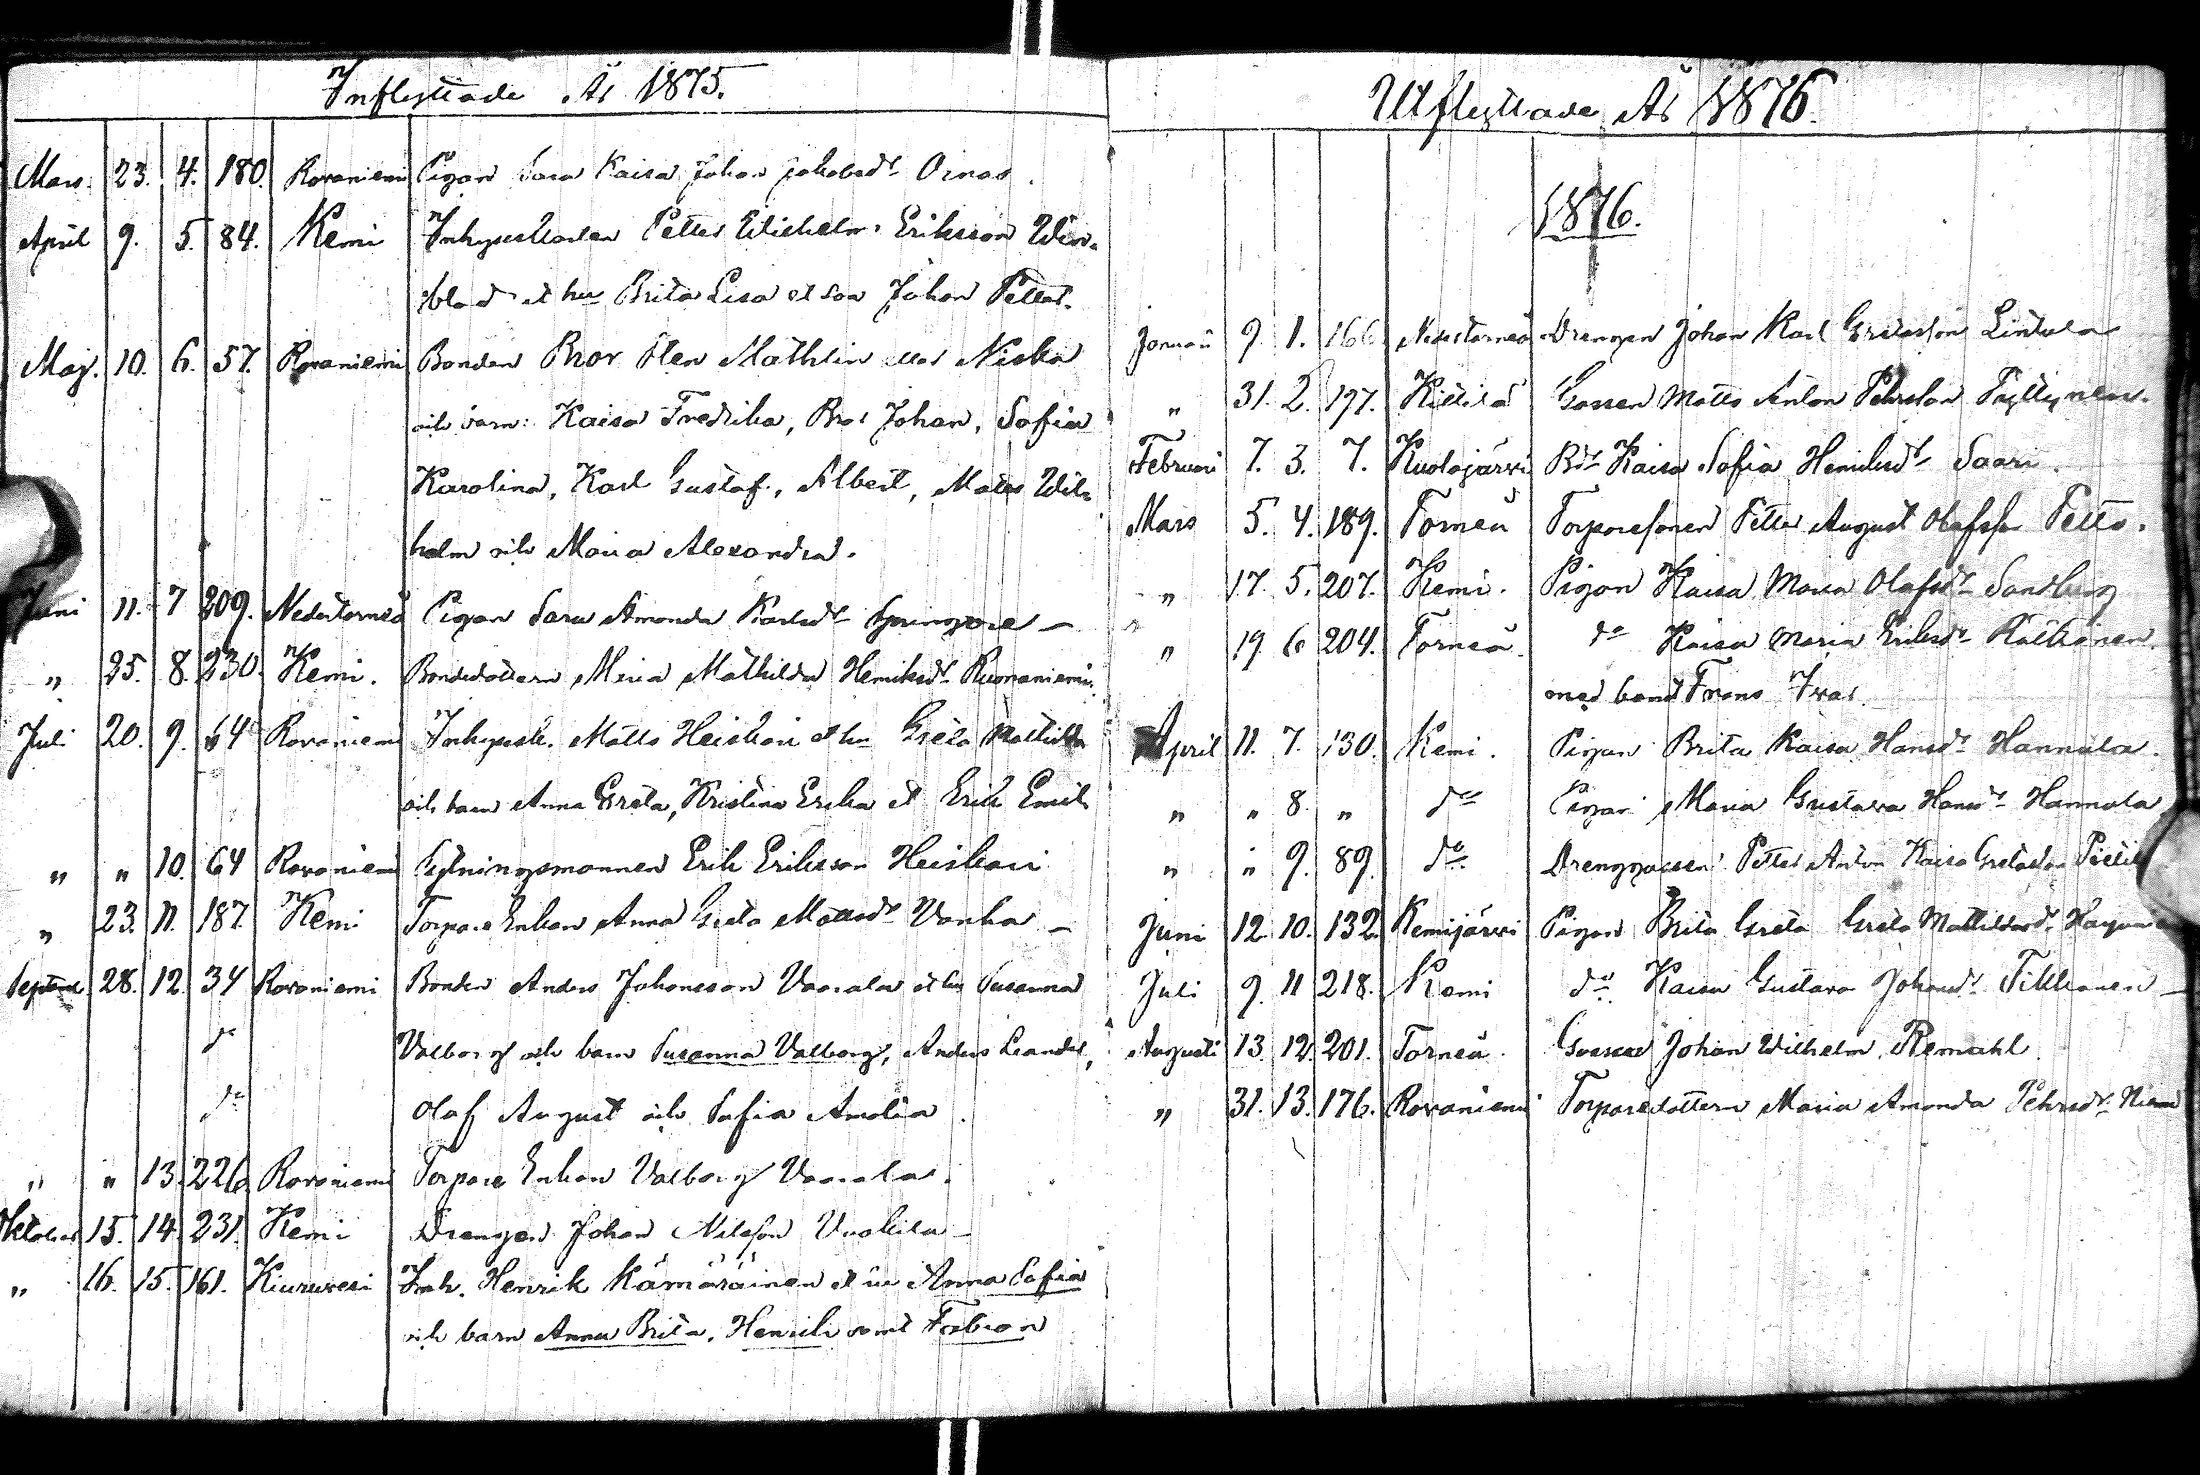 Inflyttade År 1875.
Mars. 23. 4. 180. Rovaniemi Pigan Sara Kaisa Johan Jakobsdr Oinas.
April 9. 5. 84. Kemi Inhyseskarlen Petter Wilhelm Eriksson Win-
blad et hu Brita Lisa et son Johan Petter.
Maj. 10. 6. 57. Rovaniemi Bonden Bror Sten Mathlin eller Niska
och barn: Kaisa Fredrika, Bror Johan, Sofia
Karolina, Karl Gustaf, Albert, Matts Wil-
helm och Maria Alexandra.
Juni 11. 7 209. Nedertorneå Pigan Sara Amanda Karlsdr
" 25. 8. 230. Kemi. Bondedottern Maria Mathilda Henriksdr Ruonaniemi.
Juli 20. 9. 64 Rovaniemi Inhyseh. Matts Heiskari et hu Greta Mathilda
och barn Anna Greta, Kristina Erika et Erik Emil
" " 10. 64 Rovaniemi Sytningsmannen Erik Eriksson Heiskari
" 23. 11. 187. Kemi Torpare Enkan Anna Greta Mattsdr Vanha
Septemb. 28. 12. 34 Rovaniemi Bonden Anders Johansson Vaarala et hu Susanna
do Valborg och barn Susanna Valborg, Anders Leander,
do Olof August och Sofia Amalia.
" " 13. 226. Rovaniemi Torpare Enkan Valborg Vaarala.
Oktober 15. 14. 231. Kemi Drengen Johan Nilsson Vuokila
" 16. 15. 161. Kiuruvesi Inh. Henrik Kämäräinen et hu Anna Sofia
och barn Anna Brita, Henrik samt Fabian
Utflyttade År 1876.
1876.
Januari 9. 1. 166 Nedertorneå Drengen Johan Karl Gretasson Lintula
" 31. 2. 197. Kittilä Gossen Matts Anton Pehrsson Pöyliynen.
Februari 7. 3. 7. Kuolajärvi Bdr Kaisa Sofia Henriksdr Saari.
Mars 5. 4. 189. Torneå Torparesonen Petter August Olofsson Petts.
" 17. 5. 207. Kemi. Pigan Kaisa Maria Olofsdr Sandberg
" 19 6 204. Torneå. do Kaisa Maria Eriksdr
med barnet Frans Ivar.
April 11. 7. 130. Kemi. Pigan Brita Kaisa Hansdr Hannula.
" " 8. " do Pigan Maria Gustava Hansdr Hannula
" " 9. 89. do Drenggossen Petter Anton Kaisa Gretasson
Juni 12. 10. 132. Kemijärvi Pigan Brita Greta Greta Mathildasdr
Juli 9. 11 218. Kemi do Kaisa Gustava Johansdr Tikkanen
Augusti 13. 12. 201. Torneå. Gossen Johan Wilhelm Remahl.
" 31. 13. 176. Rovaniemi Torparedottern Maria Amanda Pehrsdr